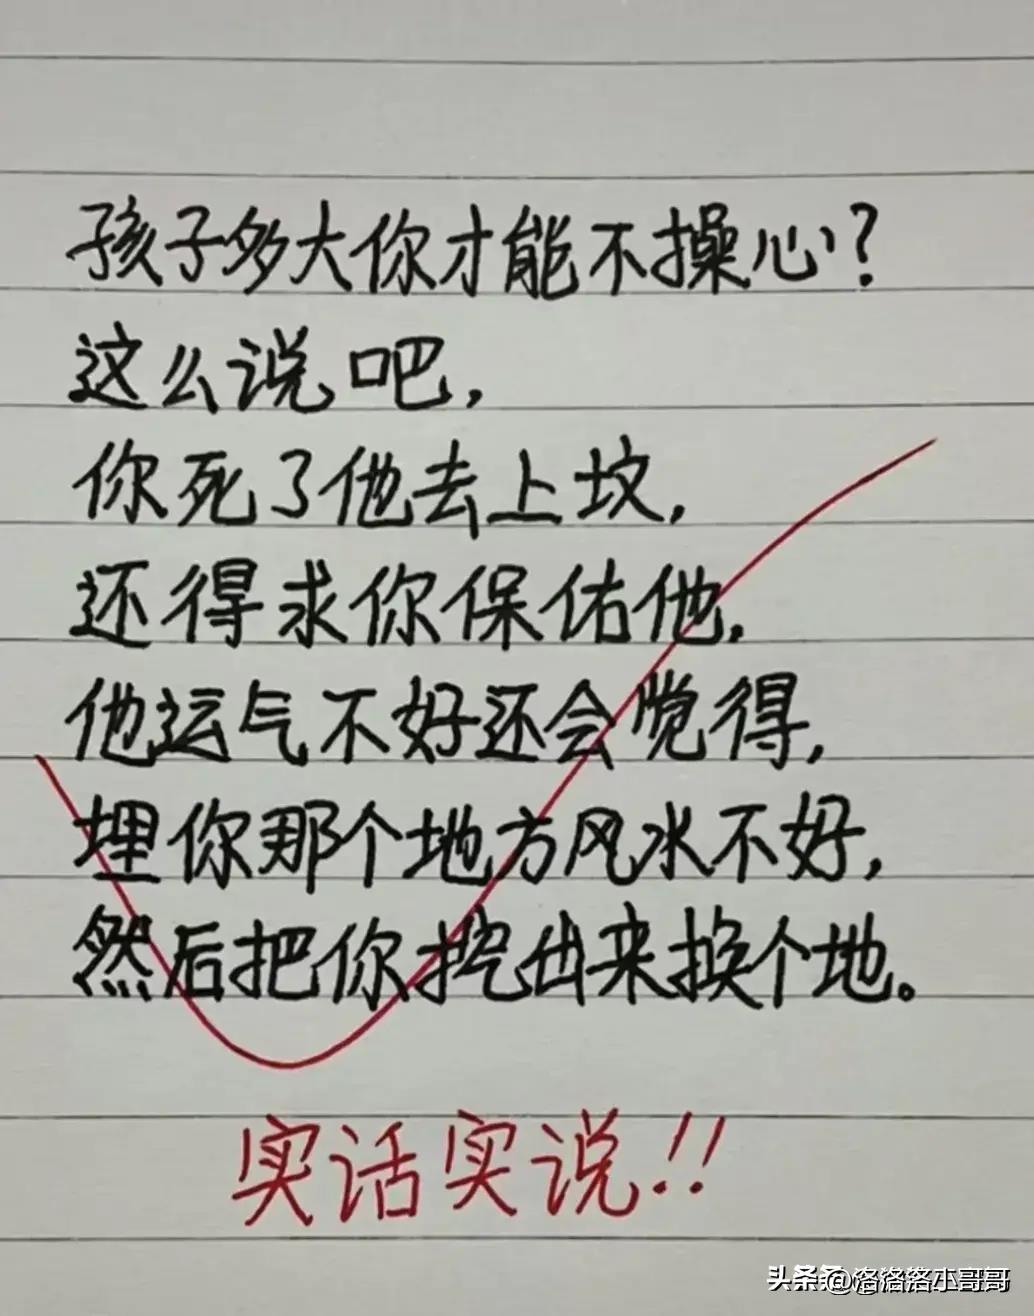 孩子多大你才能不操心?
这么说吧,
你死了他去上坟,
还得求你保佑他,
他运气不好还会觉得,
埋你那个地方风水不好,
然后把你挖出来换个地。
实话实说!!
头条 @洛洛洛小哥哥